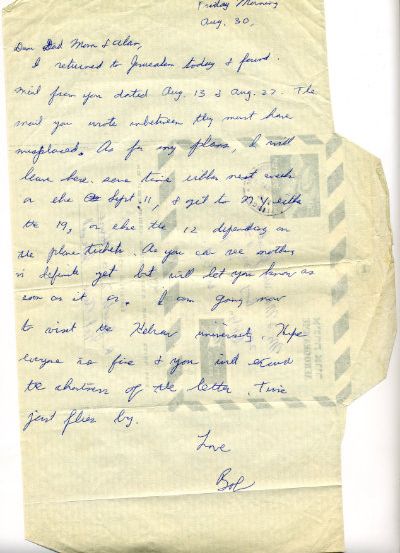 Friday Morning
Aug. 30,
Dear Dad Mom & Alan,
I returned to Jerusalem today & found
mail from you dated Aug. 13 & Aug. 27. The
mail you wrote inbetween they must have
misplaced. As for my plans, I will
leave here some time either next week
or else Sept. 11, & get to N.Y. either
the 19, or else the 12 depending on
the plane tickets. As you can see nothing
is definite yet but will let you know as
soon as it is. I am going now
to visit the Hebrew university. Hope
everyone is fine & you will excuse
the shortness of the letter. Time
just flies by.
Love
Bob